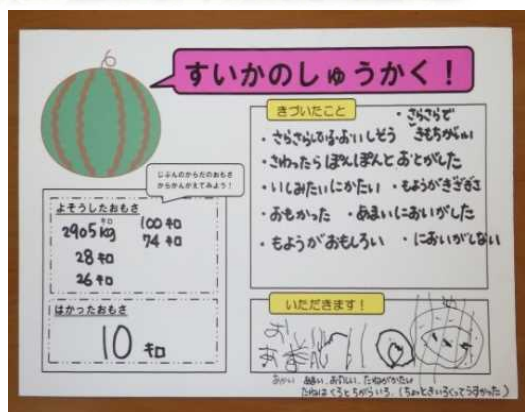 すいかのしゅうかく！
じぶんのからだのおもさ
からかんがえてみよう！
よそうしたおもさ
キロ
2905kg
100キロ
74キロ
28キロ
26キロ
はかったおもさ
10キロ
きづいたこと
・さらさらで
きもちがいい
・さわったらぽんぽんとおとがした
・いしみたいにかたい ・もようがぎざぎざ
・おもかった ・あまいにおいがした
・もようがおもしろい ・においがしない
いただきます！
あかい あまい、おいしい、たねがかたい
たねはくろとちがういろ。(ちょっときいろくってうすかった)